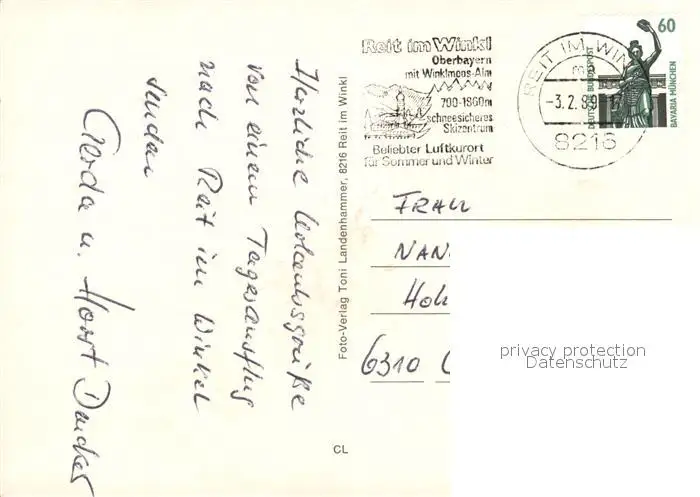 Herzliche Urlaubsgrüße
von einem Tagesausflug
nach Reit im Winkel
senden
Gerda u. Horst
Foto-Verlag Toni Landenhammer, 8216 Reit im Winkl
CL
Reit im Winkl
Oberbayern
mit Winklmoos-Alm
700-1860m
schneesicheres
Skizentrum
Beliebter Luftkurort
für Sommer und Winter
REIT IM WIN
m
-3.2.89-17
8216
60
DEUTSCHE BUNDESPOST
BAVARIA MÜNCHEN
FRAU
NAN
HOL
6310
privacy protection
Datenschutz